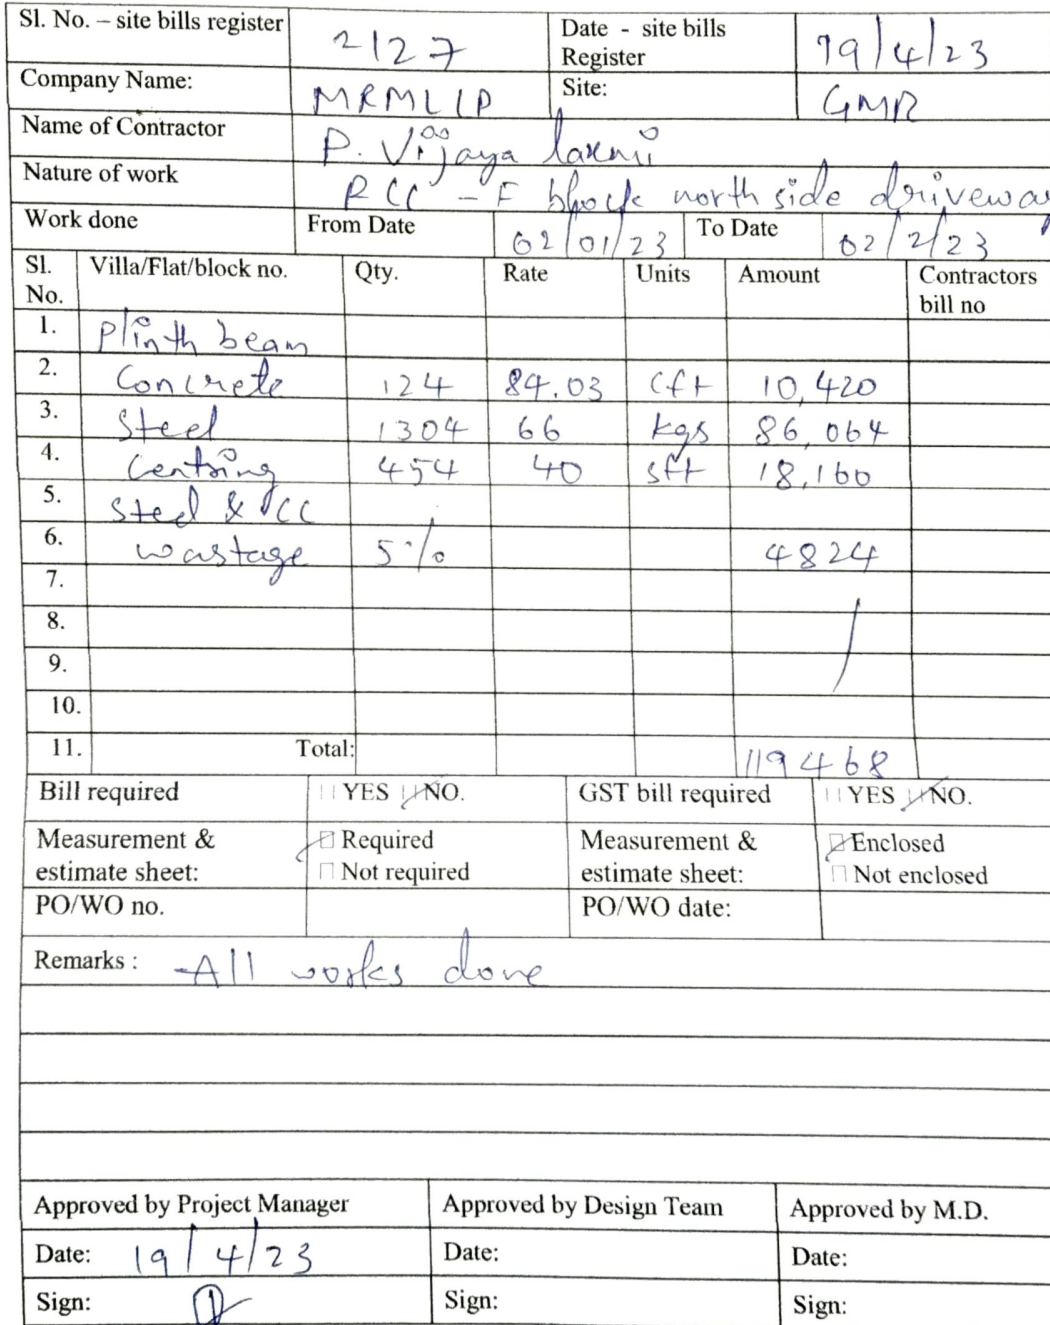 Sl. No. – site bills register 2127 Date - site bills Register 19/4/23
Company Name: MRMLLP Site: GMR
Name of Contractor P. Vijaya laxmi
Nature of work RCC - F block north side driveway
Work done From Date 02/01/23 To Date 02/2/23
Sl. No. Villa/Flat/block no. Qty. Rate Units Amount Contractors bill no
1. Plinth beam
2. Concrete 124 84.03 Cft 10,420
3. Steel 1304 66 kgs 86,064
4. Centring 454 40 sft 18,160
5. Steel & CC
6. wastage 5% 4824
7.
8.
9.
10.
11. Total: 119468
Bill required YES NO. GST bill required YES NO.
Measurement & estimate sheet: Required Measurement & estimate sheet: Enclosed
Not required Not enclosed
PO/WO no. PO/WO date:
Remarks : All works done
Approved by Project Manager Approved by Design Team Approved by M.D.
Date: 19/4/23 Date: Date:
Sign: Sign: Sign: